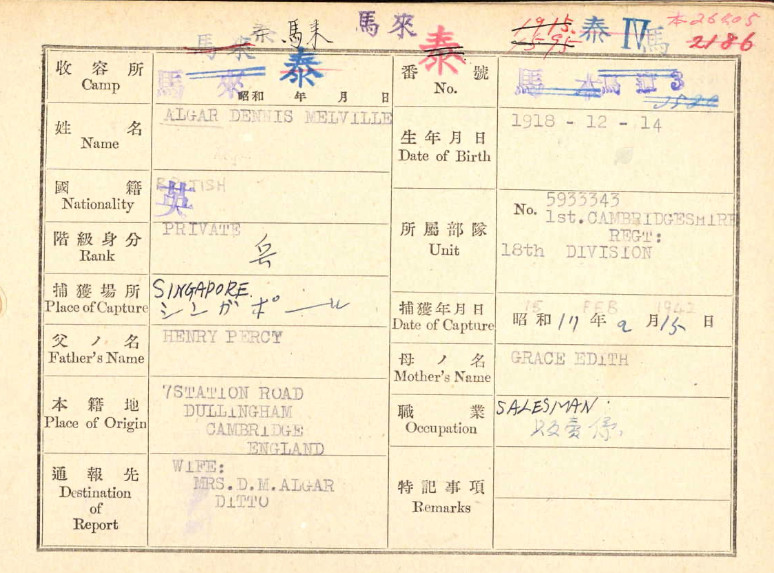 馬來 泰 馬来 馬來 泰 1915. 泰 IV 馬 本26205
2186
收容所
Camp
馬來 泰
昭和 年 月 日
番號
No.
馬
3
姓名
Name
ALGAR DENNIS MELVILLE
生年月日
Date of Birth
1918 - 12 - 14
國籍
Nationality
BRITISH
英
所屬部隊
Unit
No. 5933343
1st.CAMBRIDGESHIRE
REGT:
18th DIVISION
階級身分
Rank
PRIVATE
兵
捕獲場所
Place of Capture
SINGAPORE.
シンガポール
捕獲年月日
Date of Capture
15 FEB 1942
昭和 17 年 2 月 15 日
父ノ名
Father's Name
HENRY PERCY
母ノ名
Mother's Name
GRACE EDITH
本籍地
Place of Origin
7STATION ROAD
DULLINGHAM
CAMBRIDGE
ENGLAND
職業
Occupation
SALESMAN.
販賣係
通報先
Destination
of
Report
WIFE:
MRS.D.M.ALGAR
DITTO
特記事項
Remarks